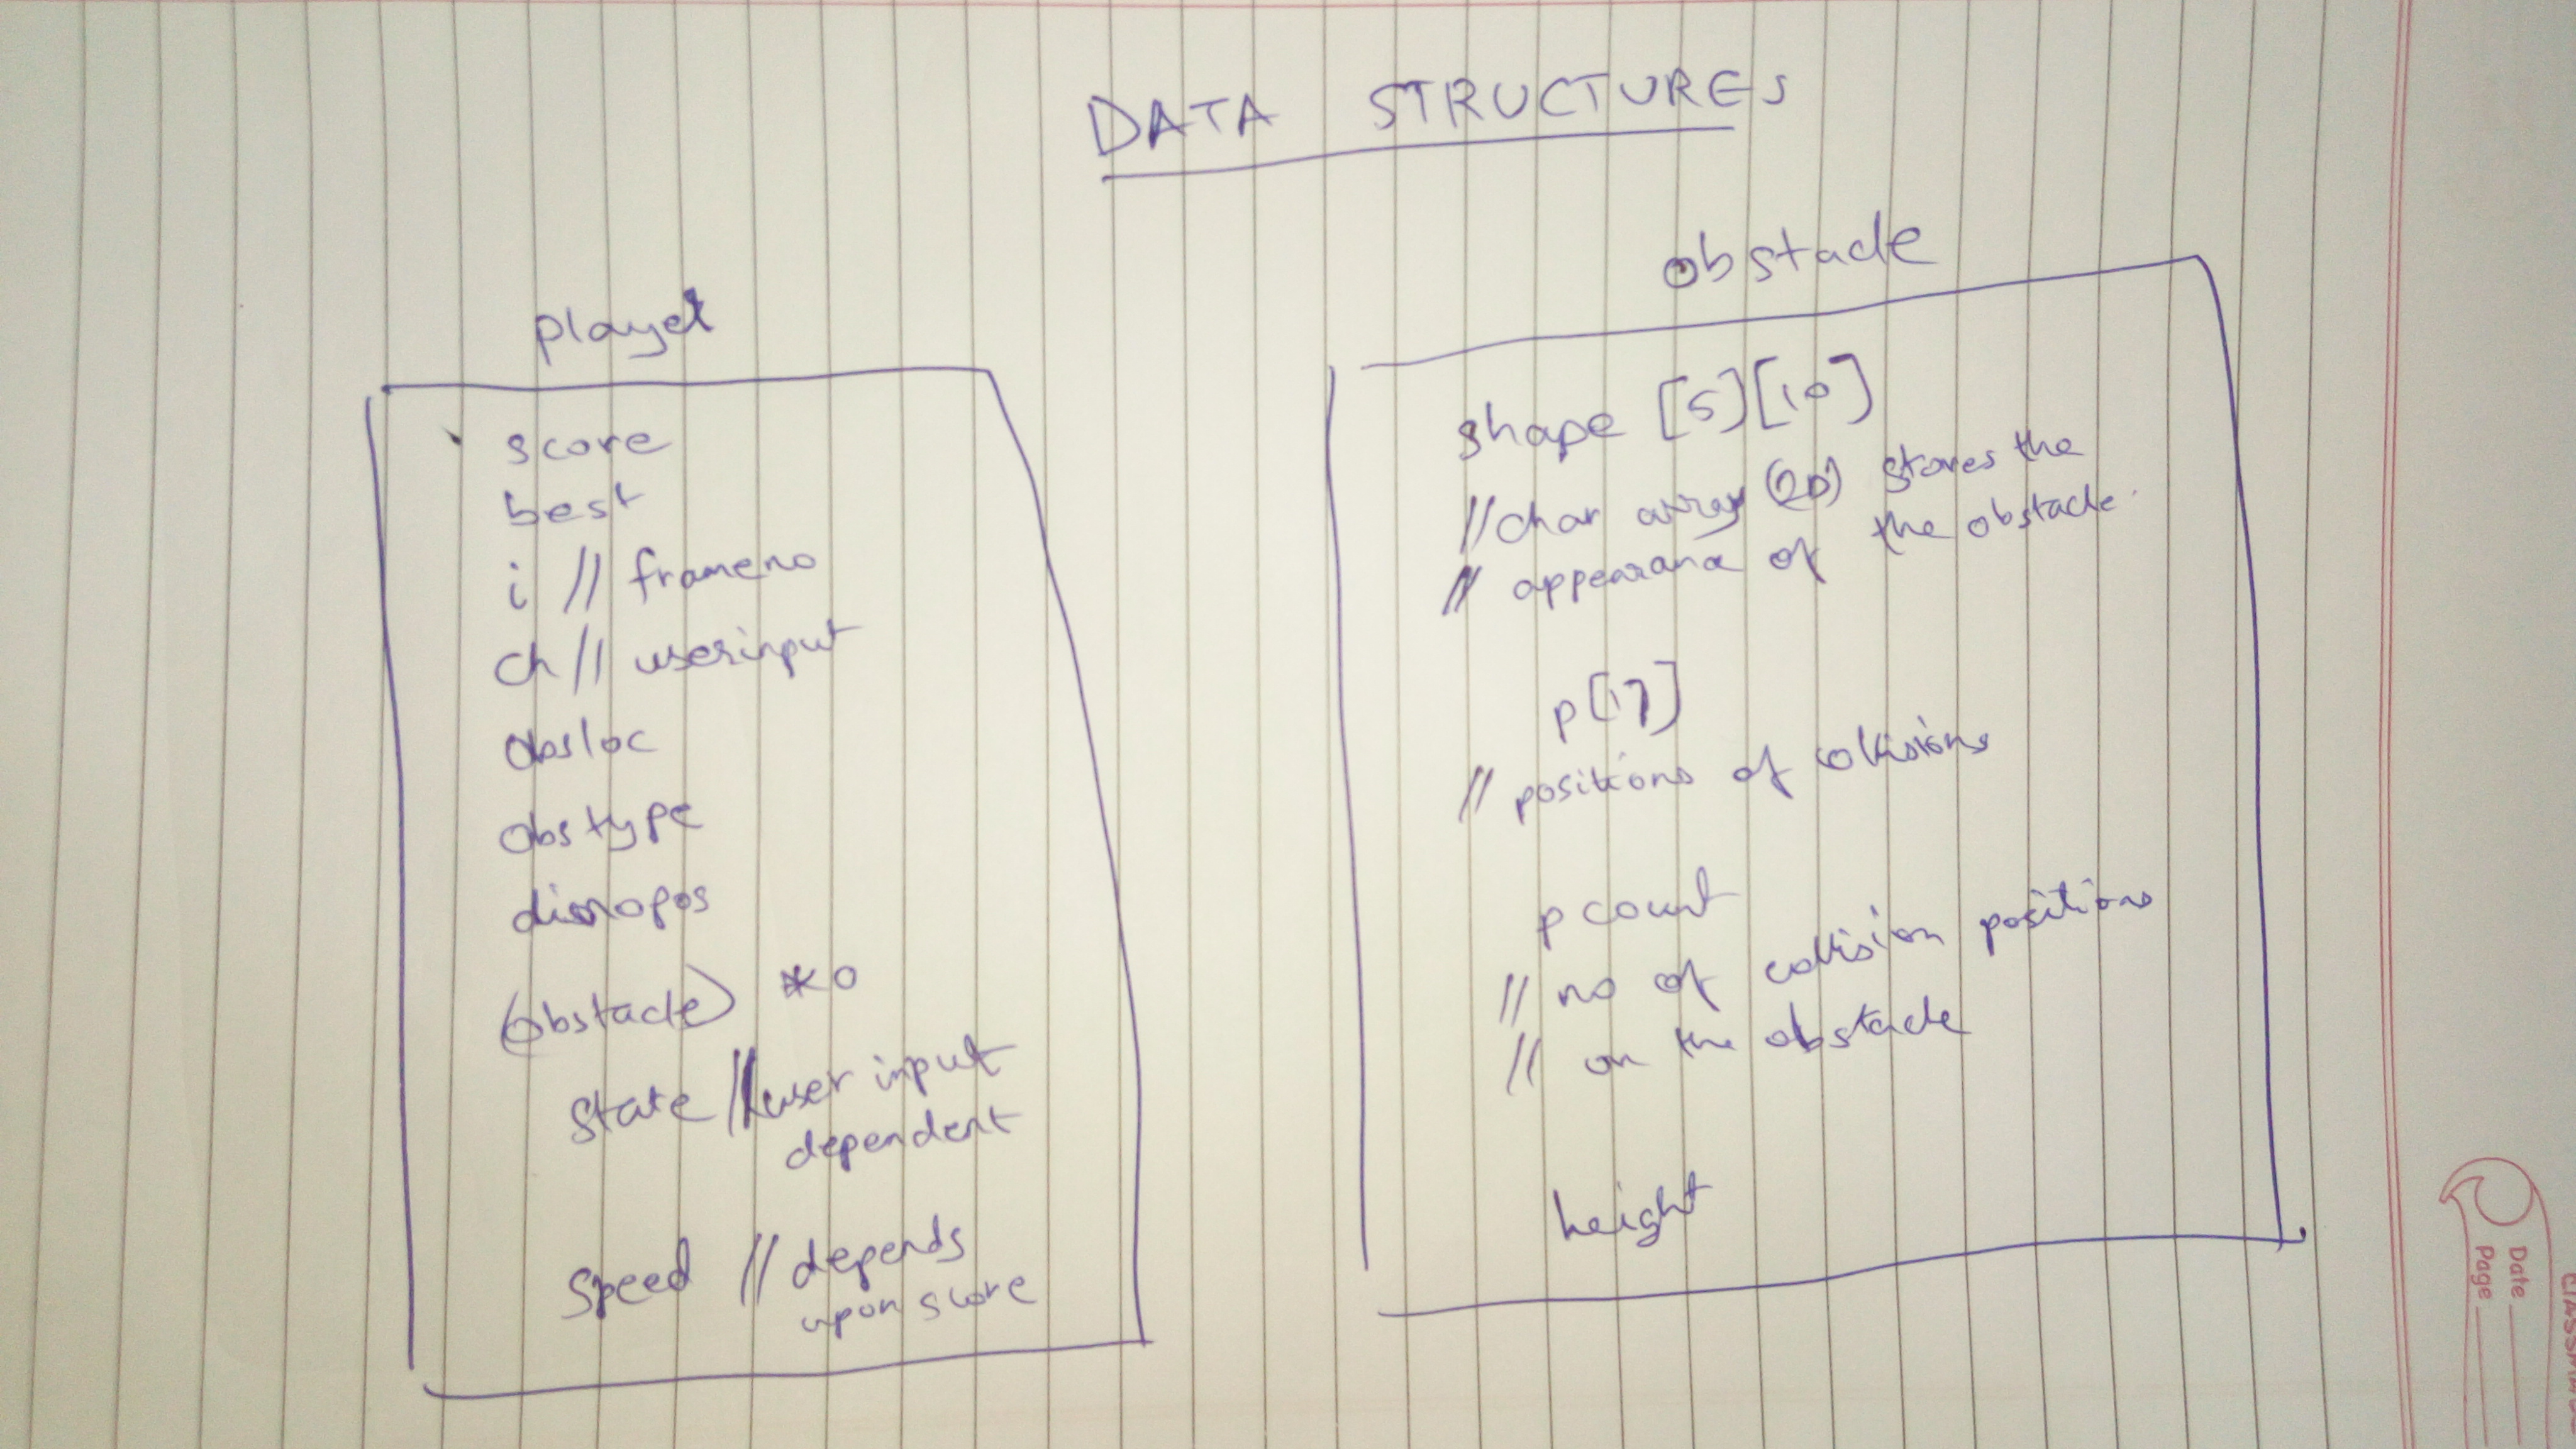 DATA STRUCTURES
player
score
best
i // frameno
ch // userinput
obsloc
obstype
dinopos
(obstacle) *o
state // user input
dependent
speed // depends
upon score
obstacle
shape [5][10]
// char array (2D) stores the
// appearance of the obstacle.
p[17]
// positions of collisions
pcount
// no of collision positions
// on the obstacle
height
Date
Page